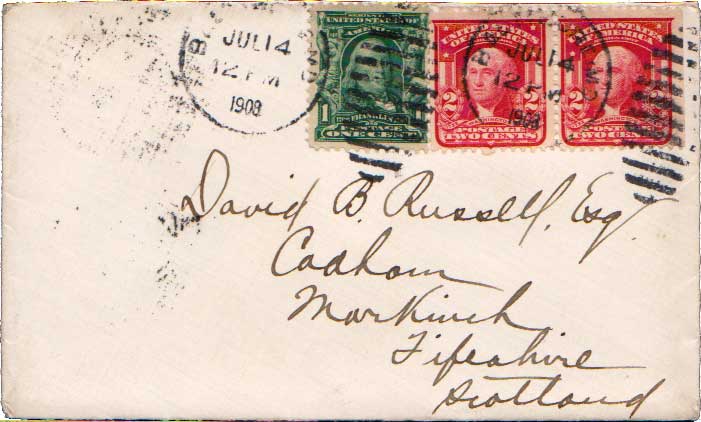 JUL 14
12 PM
1908
SERIES 1902
UNITED STATES OF AMERICA
1
FRANKLIN
POSTAGE
ONE CENT
UNITED STATES
OF AMERICA
2 2
POSTAGE
TWO CENTS
JUL 14
UNITED STATES
OF AMERICA
2 2
POSTAGE
TWO CENTS
David B. Russell, Esq.
Cadham
Markinch
Fifeshire
Scotland